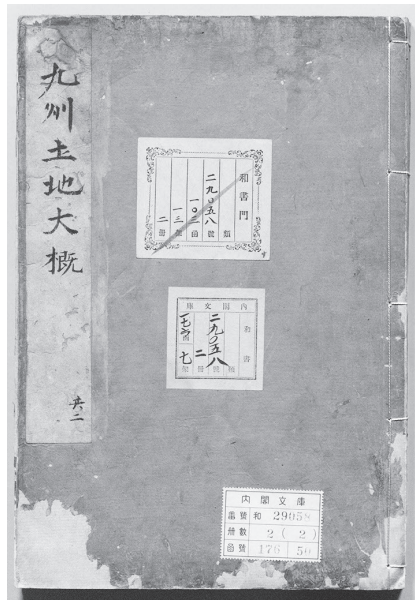 九州土地大概
共二
和書門
類
二九〇五八
號
一〇二
函
一三
架
二
冊
内閣文庫
和書
二九〇五八
號
二
冊
七
内閣文庫
番號 和 29058
冊數 2(2)
函號 176 50